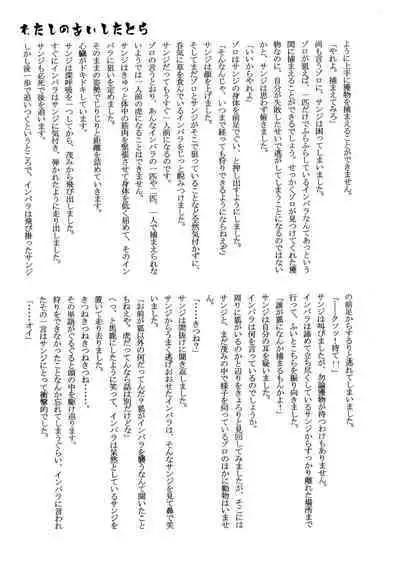 わたしのあいしたとら
ように上手に獲物を捕まえることができません。
「やれよ。捕まえてみろ」
尚も言うゾロに、サンジは困ってしまいました。
ゾロが狙えば、一匹だけでふらふらしているインパラなんてあっという
間に捕まえることができるでしょう。せっかくゾロが見つけてくれた獲
物なのに、自分が失敗したせいで逃がしてしまうことになるのではない
かと、サンジは思わず捕まえてきません。
「いいからやれよ」
ゾロはサンジの身体を前足でぐい、と押し出すようにしました。
「そんなんじゃ、いつまで経っても一人前になんかなれねえぞ」
サンジは顔を上げました。
そしてまだゾロとサンジがそこで狙っていることなど全然気付かずに、
呑気に草を食んでいるインパラをじっと睨みつけました。
ゾロの言うとおり、あんなインパラの一匹や二匹、一人で捕まえられな
ければ、いつまで経っても一人前になることはできません。
サンジはきゅっと体中の筋肉を緊張させて身体を低く屈めて、そのイン
パラに狙いを定めました。
そのままの姿勢でじりじりと距離を詰めていきます。
心臓がドキドキしています。
サンジは深呼吸を一つしてから、茂みから飛び出しました。
すぐにインパラはサンジに気付き、弾かれたように走り出しました。
サンジも必死で後を追います。
しかし後一歩で追いつくというところで、インパラは飛び掛ったサンジ
の前足からするりと逃れてしまいました。
「ークソッ！待て！」
サンジは叫びましたが、勿論獲物が待つわけもありません。
インパラは諦めて立ち尽くしているサンジからすっかり離れた場所まで
行って、ふいとこちらを振り向きました。
「誰が狐になんか捕まるもんかよ！」
サンジは自分の耳を疑いました。
インパラは何を言っているのでしょう。
周りに狐がいるのかと辺りをきょろりと見回してみましたが、そこには
サンジと、まだ茂みの中で様子を伺っているゾロのほかに動物はいませ
ん。
「……きつね？」
サンジは間抜けに聞き返しました。
サンジからうまく逃げおおせたインパラは、そんなサンジを見て鼻で笑
いました。
「お前が狐以外の何だってんだ？狐がインパラを襲うなんて聞いたこと
もねえな。虎だってんなら話は別だけどな」
へっ、と馬鹿にしたように笑って、インパラは呆然としているサンジを
置いて走り去りました。
きつねきつねきつねきつね……。
その単語がぐるぐると頭の中を駆け回ります。
狩りをできなかったことなんか忘れてしまうぐらい、インパラに言われ
たその一言はサンジにとって衝撃的でした。
「……オイ」